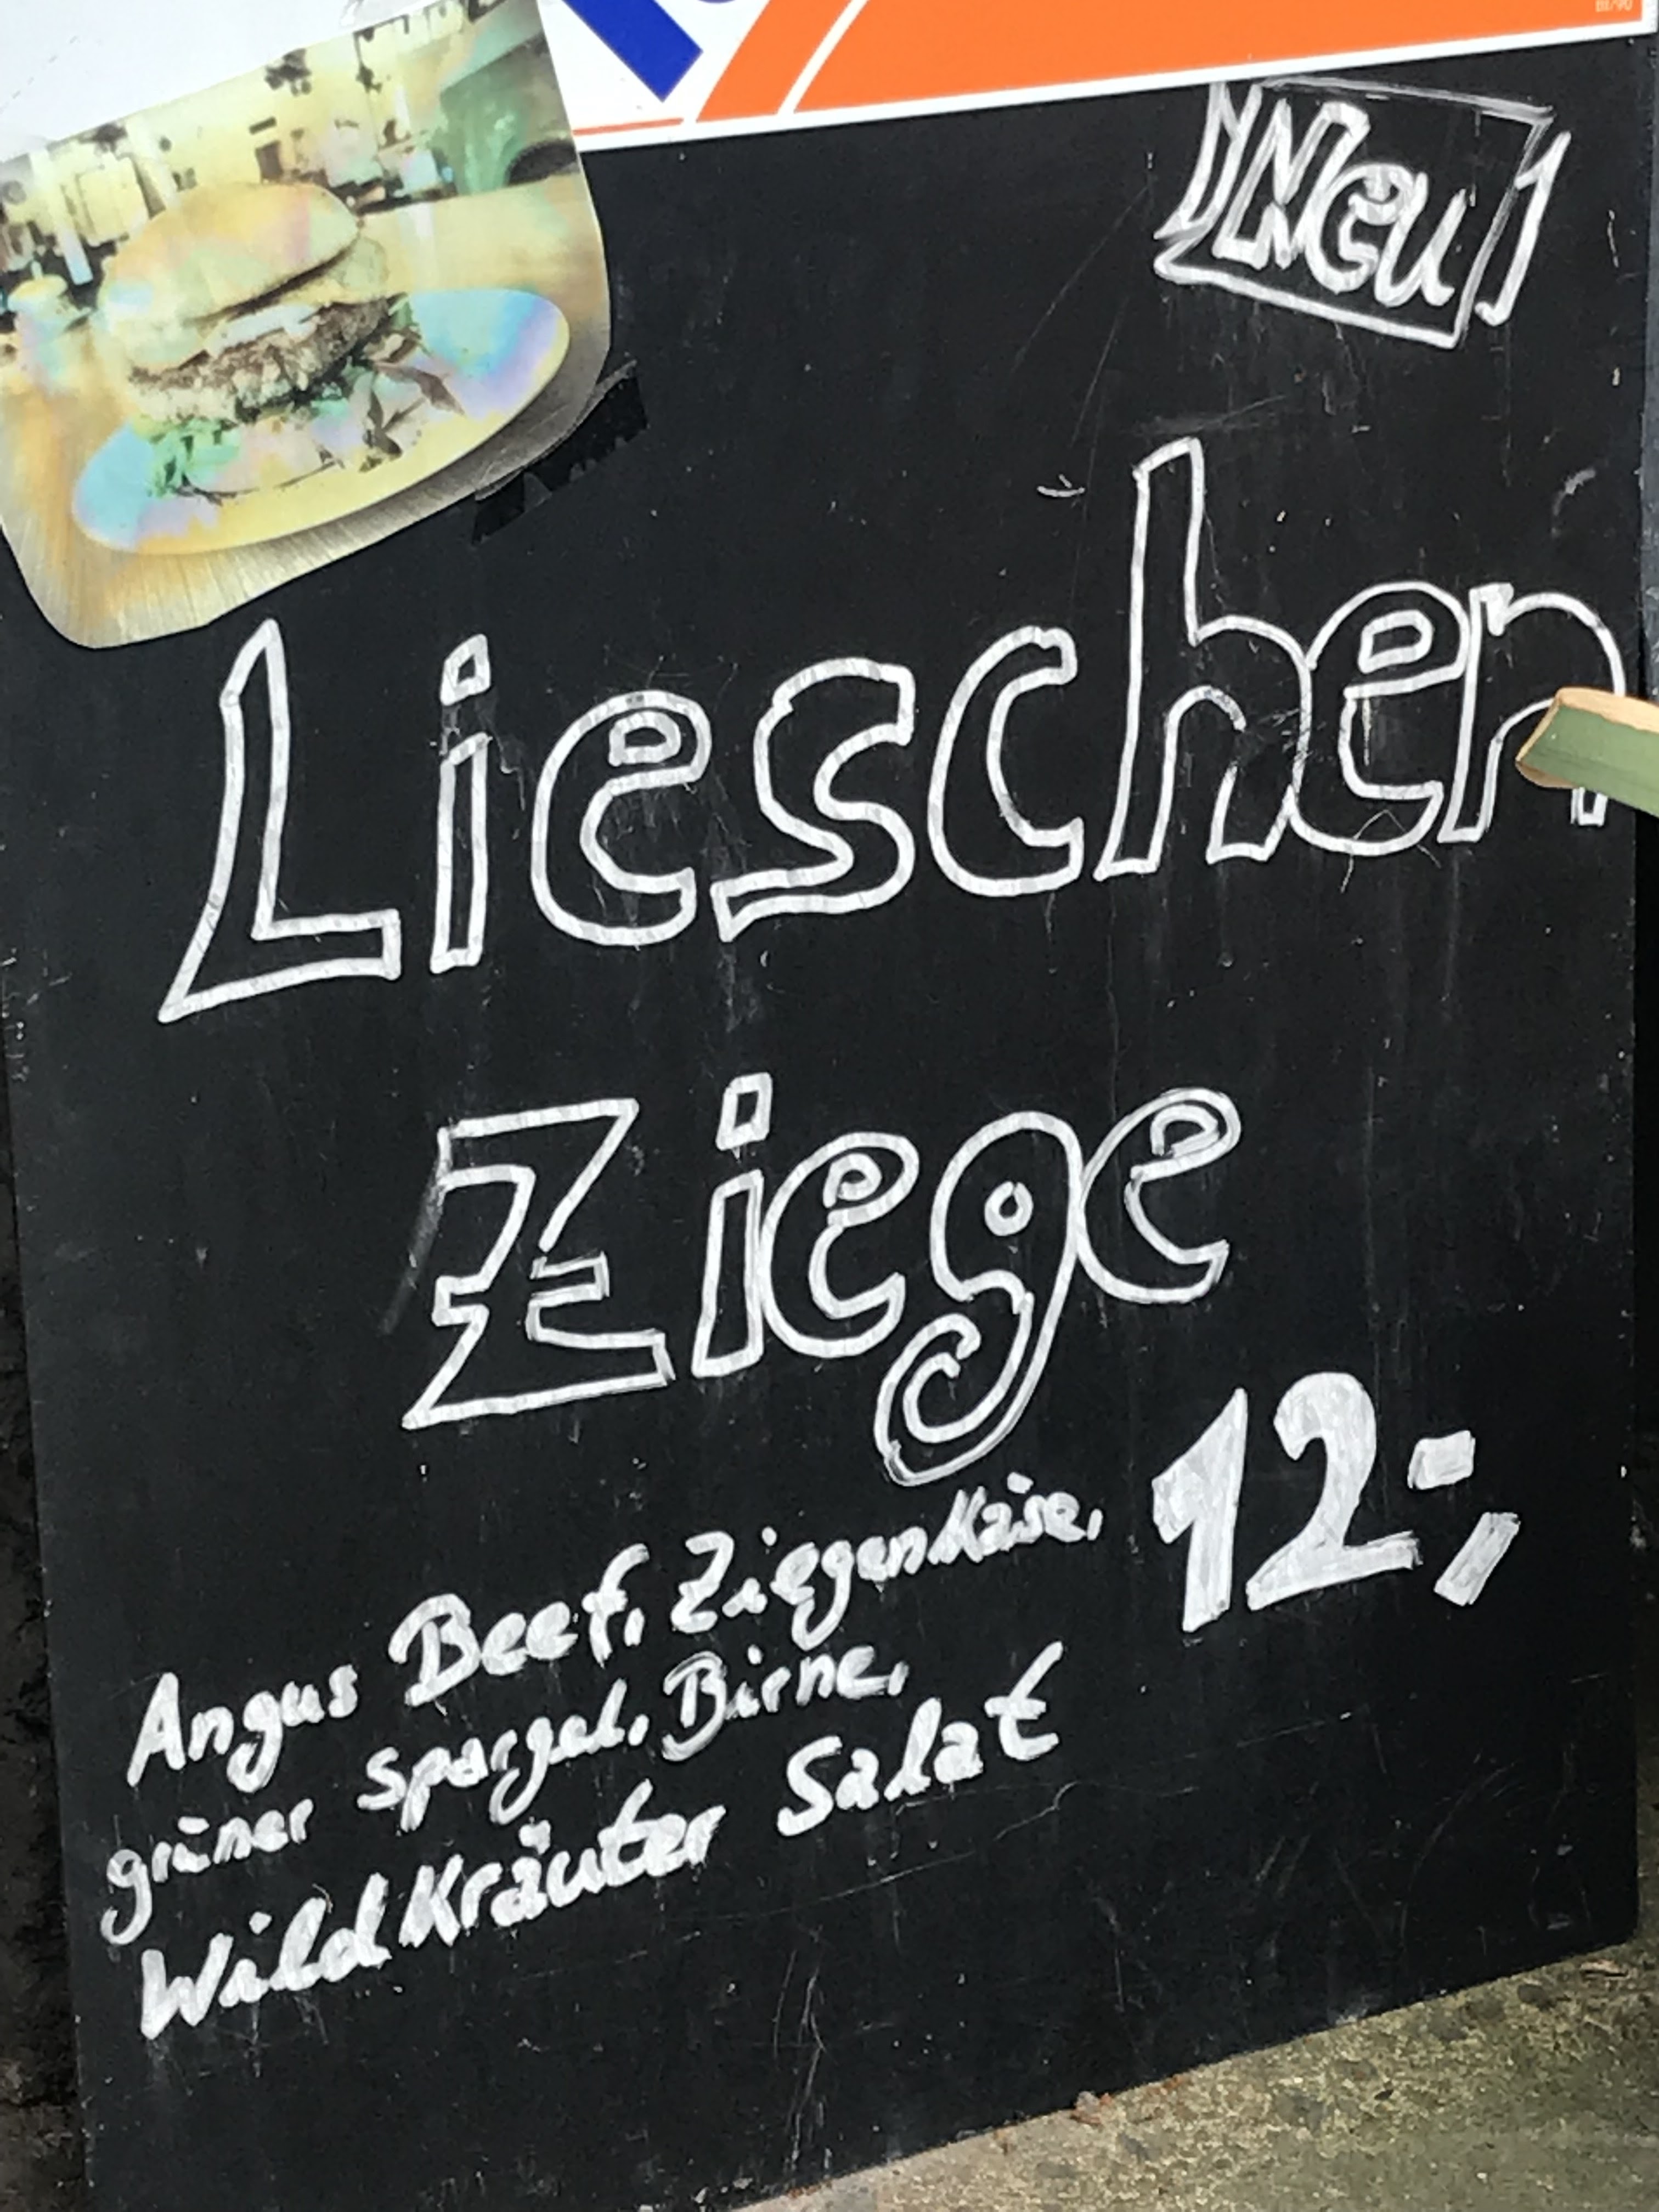 Neu
Lieschen
Ziege
12,-
Angus Beef, Ziegenkäse,
grüner Spargel, Birne,
WildKräuter Salat